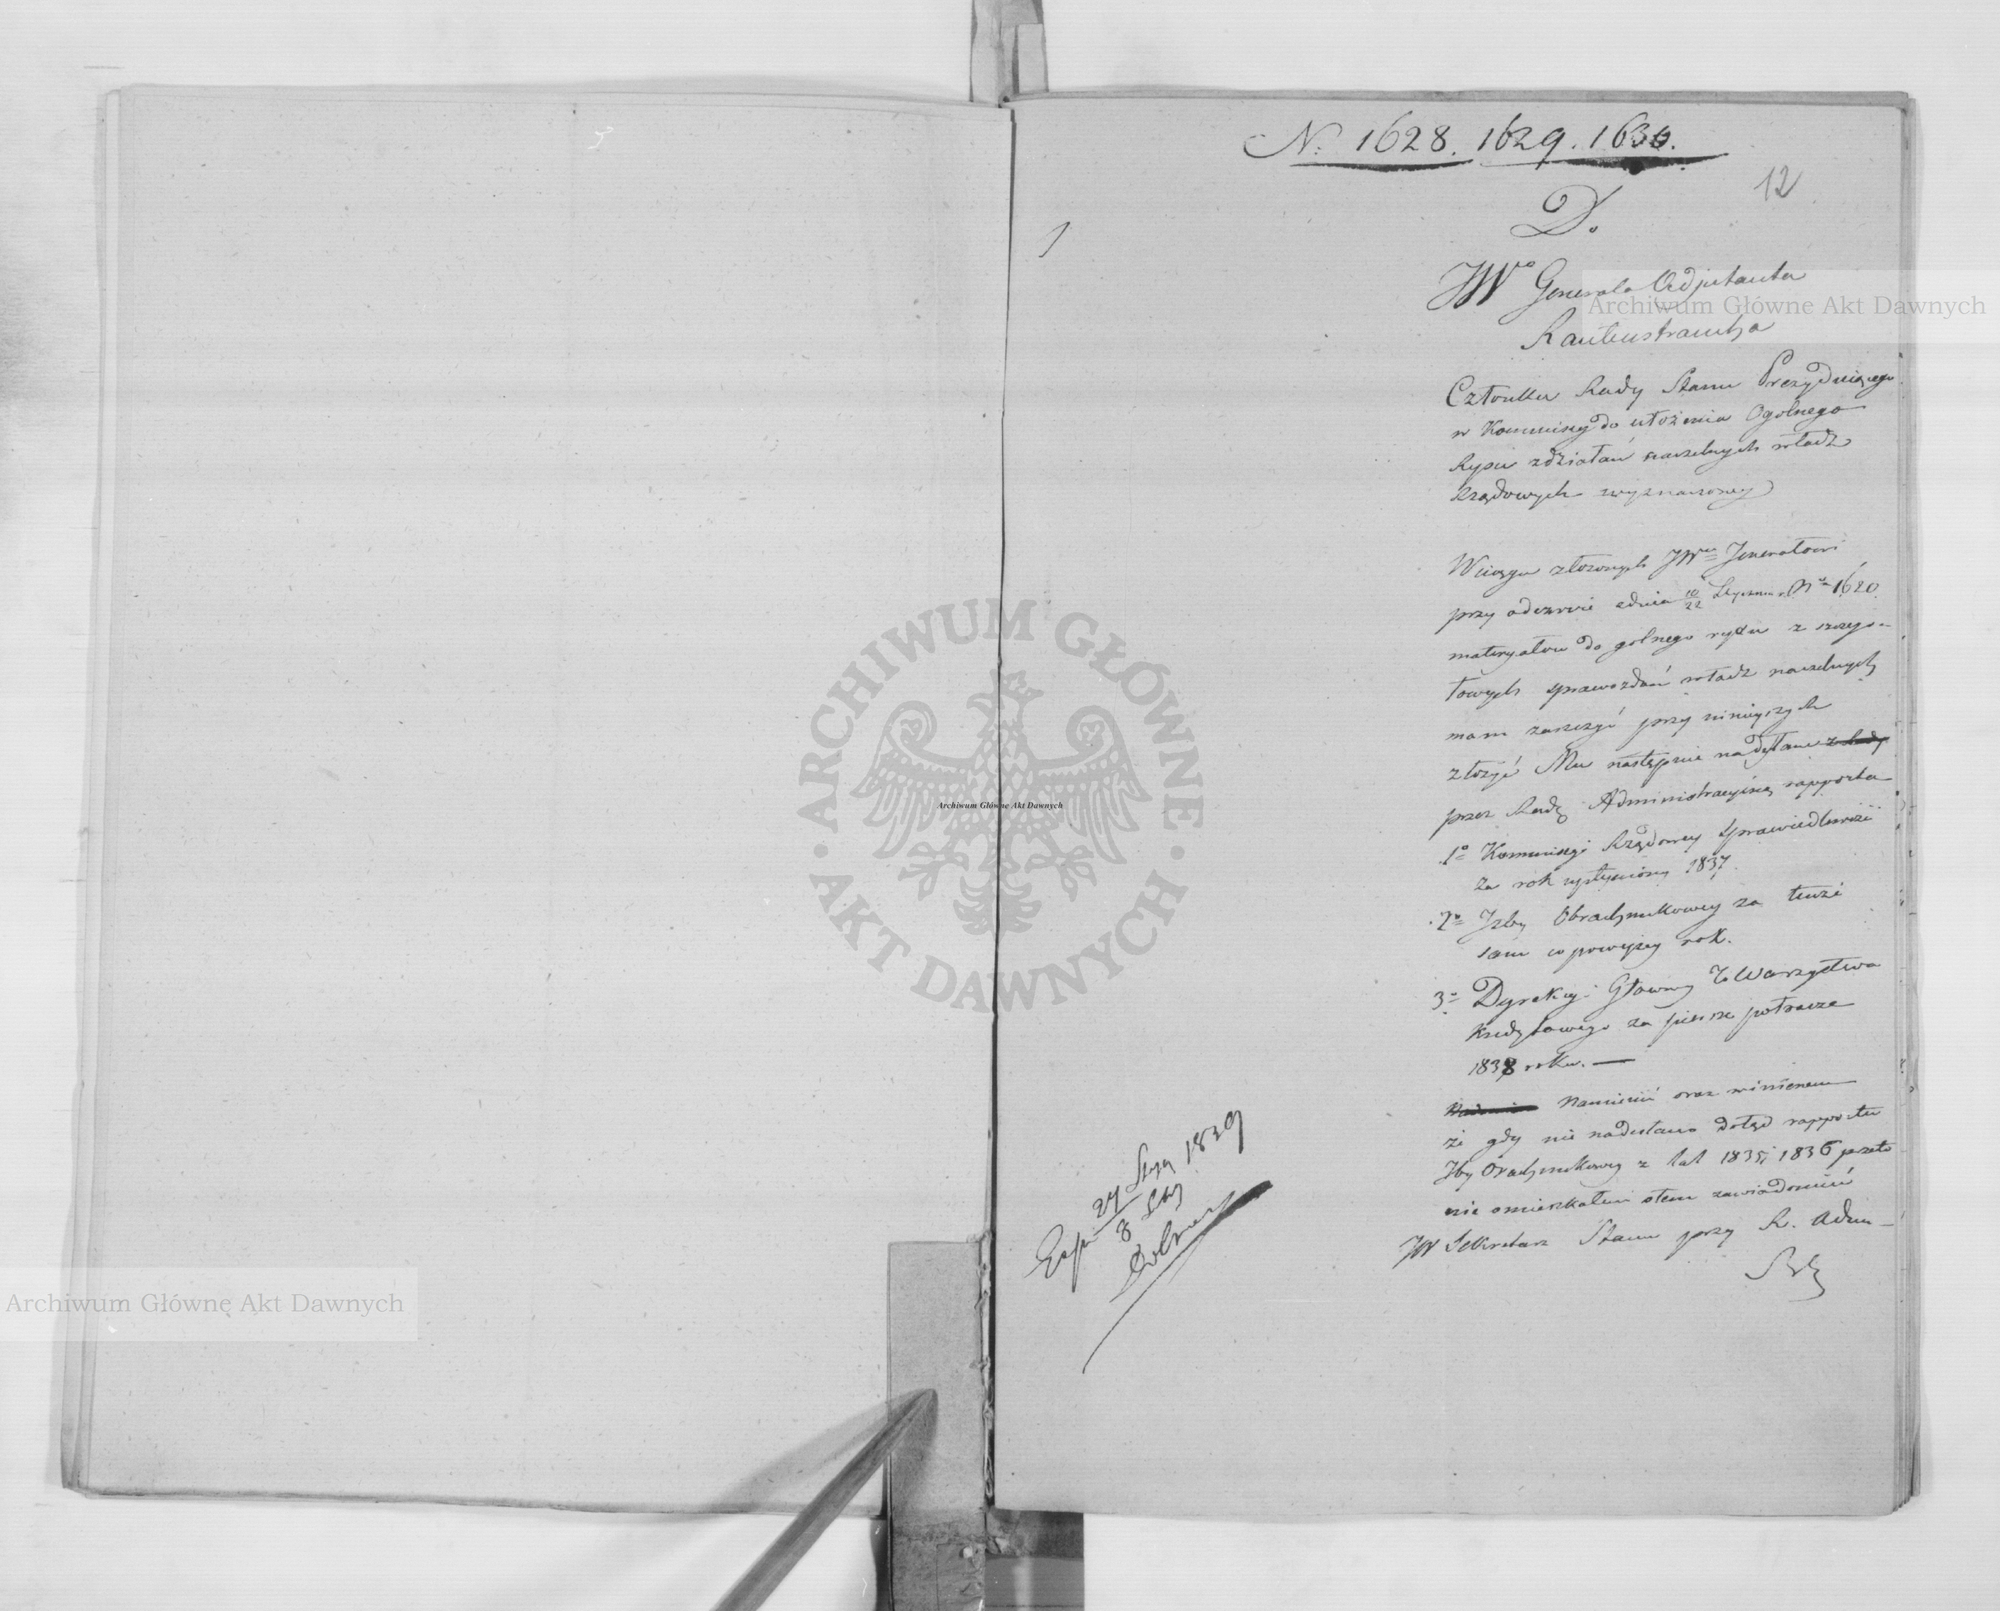 N. 1628. 1629. 1630.
12
D.
JW° Generala Adjutanta
Rautenstraucha
Członka Rady Stanu Prezydującego
w Kommisyi do ułożenia Ogolnego
Rysu zdziałań naczelnych władz
Rządowych wyznaczoney
W ciągu złożonych JW Jenerałowi
przy odezwie zdnia 10/22 Stycznia r. N° 1620
materyałow do golnego rysu z szczego-
łowych sprawozdań władz naczelnych
mam zaszczyt przy ninieyszych
złożyć Mu następnie nadesłane
przez Radę Administracyjną rapporta
1° Kommisyi Rządowey Sprawiedliwości
za rok upłyniony 1837.
2° Izby Obrachunkowey za tenże
sam co powyżey rok.
3° Dyrekcyi Głowney Towarzystwa
Kredytowego za piersze połrocze
1838 roku. —
Namienić oraz winienem
że gdy nie nadesłano dotąd rapportu
Izby Orachunkowey z lat 1835, 1836 przeto
nie omieszkałem otem zawiadomić
JW Sekretarz Stanu przy R. Adm-
Exp. 27 Stycz 1839
8
Archiwum Główne Akt Dawnych
ARCHIWUM GŁÓWNE
AKT DAWNYCH
Archiwum Główne Akt Dawnych
Archiwum Główne Akt Dawnych